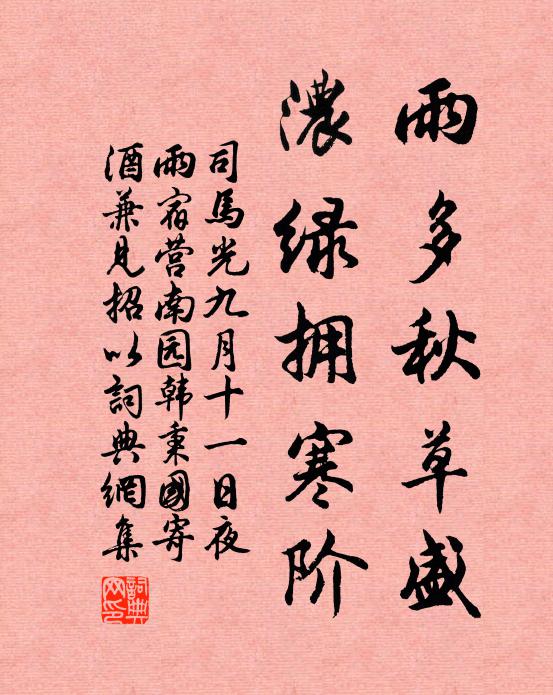 雨多秋草盛
濃绿拥寒阶
司馬光九月十一日夜
雨宿营南园韩秉國寄
酒兼見招以詞典網集
詞典
网印